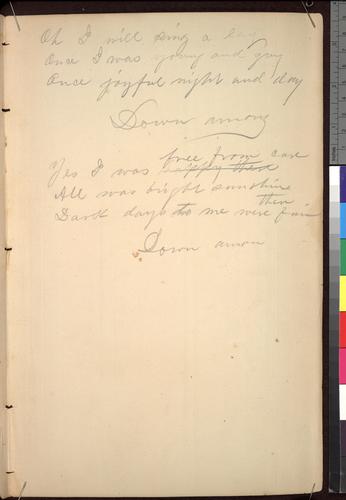 Oh I will sing a lay
Once I was young and gay
Once joyful night and day
Down among
Yes I was free from care
happy there
All was bright sunshine
then
Dark days to me were fair
Down amon